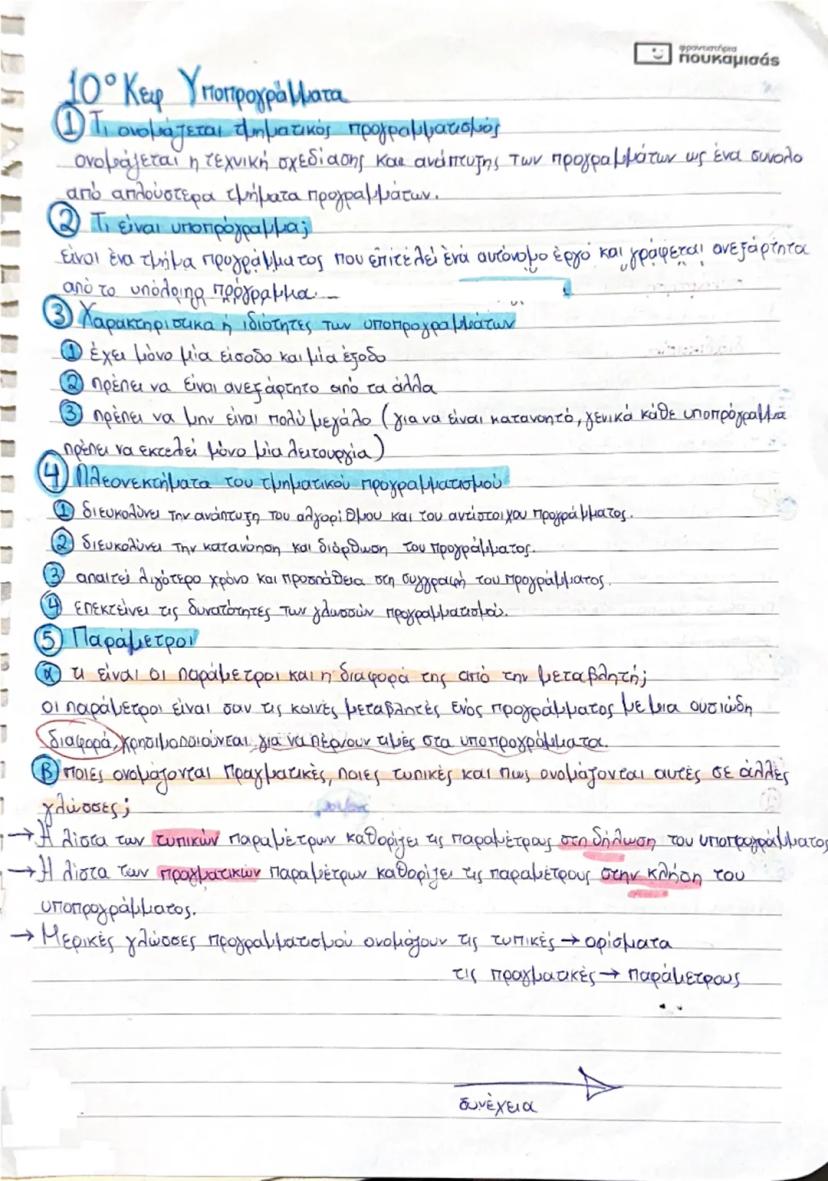 φροντιστήρια
πουκαμισάς
10° Κεφ Υποπρογράμματα
① Τι ονομάζεται τμηματικός προγραμματισμός
ονομάζεται η τεχνική σχεδίασης και ανάπτυξης των προγραμμάτων ως ένα σύνολο
από απλούστερα τμήματα προγραμμάτων.
② Τι είναι υποπρόγραμμα;
είναι ένα τμήμα προγράμματος που επιτελεί ένα αυτόνομο έργο και γράφεται ανεξάρτητα
από το υπόλοιπο πρόγραμμα.
③ Χαρακτηριστικά ή ιδιότητες των υποπρογραμμάτων
① έχει μόνο μία είσοδο και μία έξοδο
② πρέπει να είναι ανεξάρτητο από τα άλλα
③ πρέπει να μην είναι πολύ μεγάλο (για να είναι κατανοητό, γενικά κάθε υποπρόγραμμα
πρέπει να εκτελεί μόνο μία λειτουργία)
④ Πλεονεκτήματα του τμηματικού προγραμματισμού
① διευκολύνει την ανάπτυξη του αλγορίθμου και του αντίστοιχου προγράμματος.
② διευκολύνει την κατανόηση και διόρθωση του προγράμματος.
③ απαιτεί λιγότερο χρόνο και προσπάθεια στη συγγραφή του προγράμματος.
④ επεκτείνει τις δυνατότητες των γλωσσών προγραμματισμού.
⑤ Παράμετροι
α τι είναι οι παράμετροι και η διαφορά της από την μεταβλητή;
οι παράμετροι είναι σαν τις κοινές μεταβλητές ενός προγράμματος με μια ουσιώδη
διαφορά, χρησιμοποιούνται για να πέρνουν τιμές στα υποπρογράμματα.
β ποιες ονομάζονται πραγματικές, ποιες τυπικές και πως ονομάζονται αυτές σε άλλες
γλώσσες;
→ Η λίστα των τυπικών παραμέτρων καθορίζει τις παραμέτρους στη δήλωση του υποπρογράμματος
→ Η λίστα των πραγματικών παραμέτρων καθορίζει τις παραμέτρους στην κλήση του
υποπρογράμματος.
→ Μερικές γλώσσες προγραμματισμού ονομάζουν τις τυπικές → ορίσματα
τις πραγματικές → παράμετρους
συνέχεια